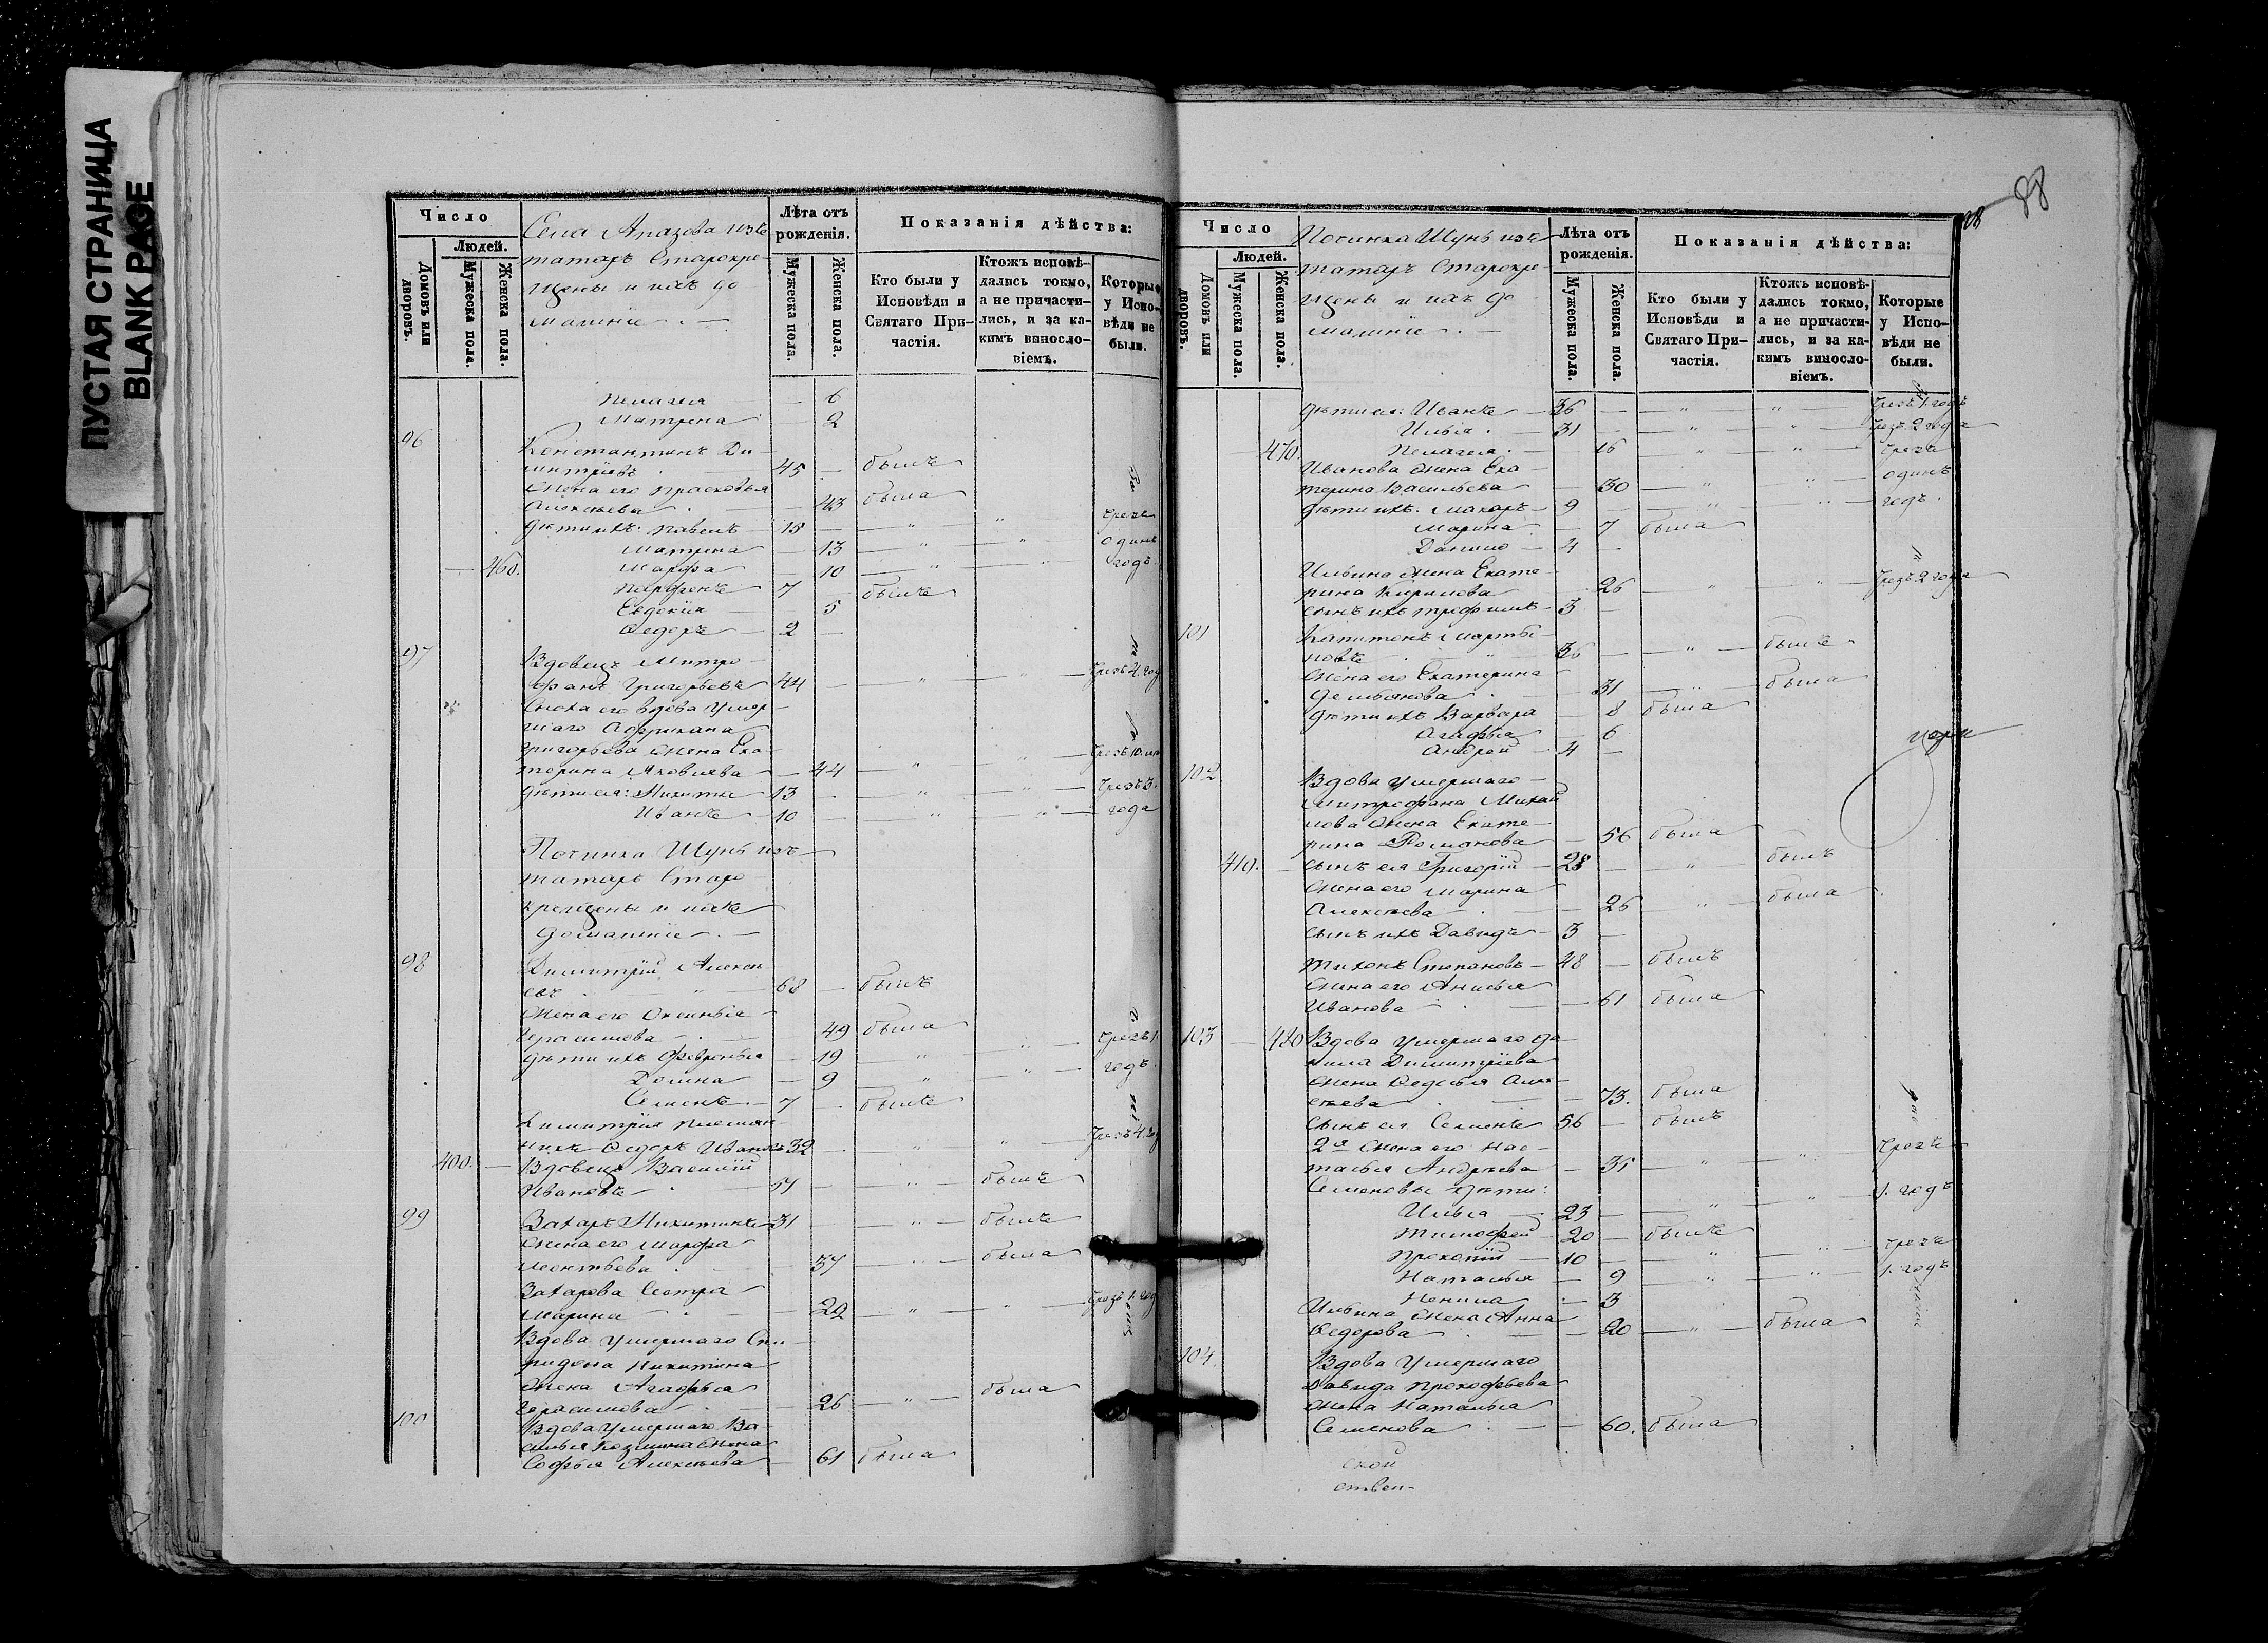 ПУСТАЯ СТРАНИЦА
BLANK PAGE
Число
Людей.
Домовъ или дворовъ.
Мужеска пола.
Женска пола.
Села Аразова изъ
татаръ Старокре-
щены и ихъ до
машніе
Лѣта отъ рожденія.
Мужеска пола.
Женска пола.
Показанія дѣйства:
Кто были у Исповѣди и Святаго При-частія.
Ктожъ исповѣ-дались токмо, а не причасти-лись, и за ка-кимъ винословіемъ.
Которые у Испо-вѣди не были.
Пелагея — 6
Матрона — 2
96 Константинъ Ди-
митріевъ 45 — былъ
Жена его Прасковья
Алексѣева — 43 была
Дѣти ихъ: Павелъ 15 — " — " — чрезъ
Матрона — 13 — " — " — одинъ
460. Марфа — 10 — " — " — годъ.
Парфенъ 7 — былъ
Евдокія — 5
Ѳедоръ — 2 —
97 Вдовецъ Митро-
фанъ Григорьевъ 44 — " — " — чрезъ 4. год
Сноха его вдова умер-
шаго Африкана
Григорьева жена Ека-
терина Яковлева — 44 — " — " — чрезъ 10. лѣт
Дѣти ея: Никита 13 — " — " — чрезъ 3.
Иванъ 10 — " — " — года
Починка Шунь изъ
татаръ Старо-
крещены и ихъ
домашніе
98 Димитрій Алексѣ
евъ 68 — былъ
Жена его Оксинья
Герасимова 49 была
Дѣти их Февронья — 19 — " — " — чрезъ 1.
Домна — 9 — " — " — годъ.
Семенъ 7 — былъ
Димитрія племян-
никъ Ѳедоръ Ивановъ 32 — " — " — чрезъ 4. год
400. Вдовецъ Василій
Ивановъ 51 — " — былъ
99 Захаръ Никитинъ 31 — " — былъ
Жена его Марфа
Леонтьева — 37 — " — была
Захарова Сестра
Марина — 29 — " — " — чрезъ 1. год
Вдова умершаго Спи-
ридона Никитина
Жена Агафья
Герасимова — 26 — " — была
100 Вдова умершаго Ва-
силья Козмина жена
Софья Алексѣева — 61 была
88
88
Число
Людей.
Домовъ или дворовъ.
Мужеска пола.
Женска пола.
Починка Шунь изъ
татаръ Старокре-
щены и ихъ до
машніе
Лѣта отъ рожденія.
Мужеска пола.
Женска пола.
Показанія дѣйства:
Кто были у Исповѣди и Святаго При-частія.
Ктожъ исповѣ-дались токмо, а не причасти-лись, и за ка-кимъ винословіемъ.
Которые у Испо-вѣди не были.
Дѣти ея: Иванъ 36 — " — " — чрезъ 1. годъ
Илья 31 — " — " — чрезъ 2 года
470. Пелагея 16 — " — " — чрезъ
Иванова жена Ека-
терина Васильева — 30 — " — " — одинъ
Дѣти ихъ: Макаръ 9 — " — " — годъ.
Марина — 7 была
Данило 4 —
Ильина жена Екате-
рина Кирилова 26 " " — чрезъ 2 года
Сынъ ихъ Трофимъ 3 —
101 Капитонъ Марты-
новъ 36 — " — былъ
Жена его Екатерина
Демьянова — 31 — " — была
Дѣти ихъ Варвара — 8 была
Агафья — 6
Андрей 4 —
102 Вдова умершаго
Митрофана Михай
лова жена Екате-
рина Романова — 56 была
410. Сынъ ея Григорій 28 — " — былъ
Жена его Марина
Алексѣева — 26 — " — была
Сынъ ихъ Давидъ 3 —
Тихонъ Степановъ 48 — былъ
Жена его Анисья
Иванова — 61 была
103 480 Вдова умершаго Да-
нила Димитріева
Жена Ѳедосья Алек-
сѣева — 73. была
Сынъ ея Семенъ 56 — былъ
2я жена его Нас-
тасья Андреева — 35 — " — " — чрезъ
Семеновы дѣти: 1. годъ
Илья 23 — " — "
Тимофей 20 — былъ
Прокопій 10 — " — " — чрезъ
Наталья — 9 " " — 1. годъ
Ненила — 3
Ильина жена Анна
Ѳедорова — 20 — " — была
104. Вдова умершаго
Давида Прокофьева
жена Наталья
Семенова — 60. была
скои
ствен-